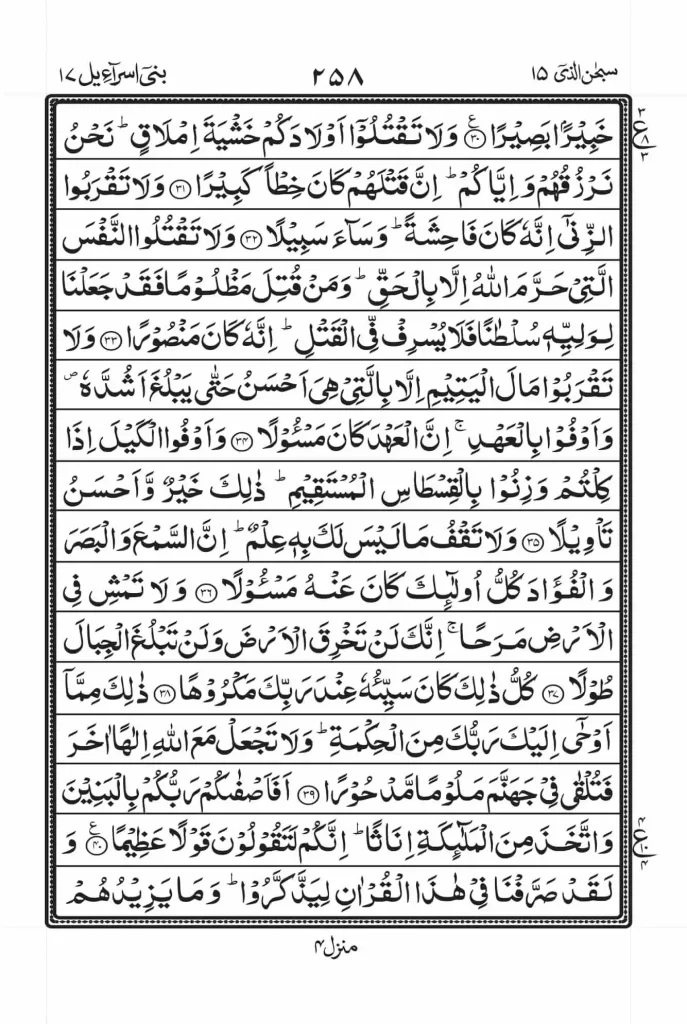 سبحٰن الذی ۱۵ ۲۵۸ بنی اسرآءیل ۱۷
خَبِیۡرًۢا بَصِیۡرًا ﴿۳۰﴾ ع وَ لَا تَقۡتُلُوۡۤا اَوۡلَادَکُمۡ خَشۡیَۃَ اِمۡلَاقٍ ؕ نَحۡنُ ۳ ع ۸ ۳
نَرۡزُقُہُمۡ وَ اِیَّاکُمۡ ؕ اِنَّ قَتۡلَہُمۡ کَانَ خِطۡاً کَبِیۡرًا ﴿۳۱﴾ وَ لَا تَقۡرَبُوا
الزِّنٰۤی اِنَّہٗ کَانَ فَاحِشَۃً ؕ وَ سَآءَ سَبِیۡلًا ﴿۳۲﴾ وَ لَا تَقۡتُلُوا النَّفۡسَ
الَّتِیۡ حَرَّمَ اللّٰہُ اِلَّا بِالۡحَقِّ ؕ وَ مَنۡ قُتِلَ مَظۡلُوۡمًا فَقَدۡ جَعَلۡنَا
لِوَلِیِّہٖ سُلۡطٰنًا فَلَا یُسۡرِفۡ فِّی الۡقَتۡلِ ؕ اِنَّہٗ کَانَ مَنۡصُوۡرًا ﴿۳۳﴾ وَ لَا
تَقۡرَبُوۡا مَالَ الۡیَتِیۡمِ اِلَّا بِالَّتِیۡ ہِیَ اَحۡسَنُ حَتّٰی یَبۡلُغَ اَشُدَّہٗ ۪
وَ اَوۡفُوۡا بِالۡعَہۡدِ ۚ اِنَّ الۡعَہۡدَ کَانَ مَسۡـُٔوۡلًا ﴿۳۴﴾ وَ اَوۡفُوا الۡکَیۡلَ اِذَا
کِلۡتُمۡ وَ زِنُوۡا بِالۡقِسۡطَاسِ الۡمُسۡتَقِیۡمِ ؕ ذٰلِکَ خَیۡرٌ وَّ اَحۡسَنُ
تَاۡوِیۡلًا ﴿۳۵﴾ وَ لَا تَقۡفُ مَا لَیۡسَ لَکَ بِہٖ عِلۡمٌ ؕ اِنَّ السَّمۡعَ وَ الۡبَصَرَ
وَ الۡفُؤَادَ کُلُّ اُولٰٓئِکَ کَانَ عَنۡہُ مَسۡـُٔوۡلًا ﴿۳۶﴾ وَ لَا تَمۡشِ فِی
الۡاَرۡضِ مَرَحًا ۚ اِنَّکَ لَنۡ تَخۡرِقَ الۡاَرۡضَ وَ لَنۡ تَبۡلُغَ الۡجِبَالَ
طُوۡلًا ﴿۳۷﴾ کُلُّ ذٰلِکَ کَانَ سَیِّئُہٗ عِنۡدَ رَبِّکَ مَکۡرُوۡہًا ﴿۳۸﴾ ذٰلِکَ مِمَّاۤ
اَوۡحٰۤی اِلَیۡکَ رَبُّکَ مِنَ الۡحِکۡمَۃِ ؕ وَ لَا تَجۡعَلۡ مَعَ اللّٰہِ اِلٰـہًا اٰخَرَ
فَتُلۡقٰی فِیۡ جَہَنَّمَ مَلُوۡمًا مَّدۡحُوۡرًا ﴿۳۹﴾ اَفَاَصۡفٰىکُمۡ رَبُّکُمۡ بِالۡبَنِیۡنَ
وَ اتَّخَذَ مِنَ الۡمَلٰٓئِکَۃِ اِنَاثًا ؕ اِنَّکُمۡ لَتَقُوۡلُوۡنَ قَوۡلًا عَظِیۡمًا ﴿۴۰﴾ ع وَ ۴ ع ۱۰ ۴
لَقَدۡ صَرَّفۡنَا فِیۡ ہٰذَا الۡقُرۡاٰنِ لِیَذَّکَّرُوۡا ؕ وَ مَا یَزِیۡدُہُمۡ
منزل ۴